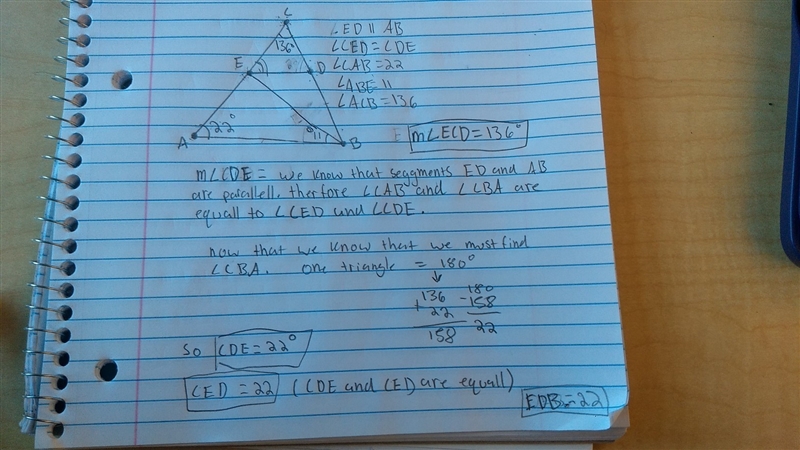 C
136°
E
D
A
22°
11
B
∠ED || AB
∠CED = ∠CDE
∠CAB = 22
∠ABE = 11
∠ACB = 136
m∠ECD = 136°
m∠CDE = we know that seggments ED and AB
are parallell, therfore ∠CAB and ∠CBA are
equall to ∠CED and ∠CDE.
now that we know that we must find
∠CBA. one triangle = 180°
136
+ 22
158
180
-158
22
so CDE = 22°
CED = 22 (CDE and CED are equall)
EDB = 22